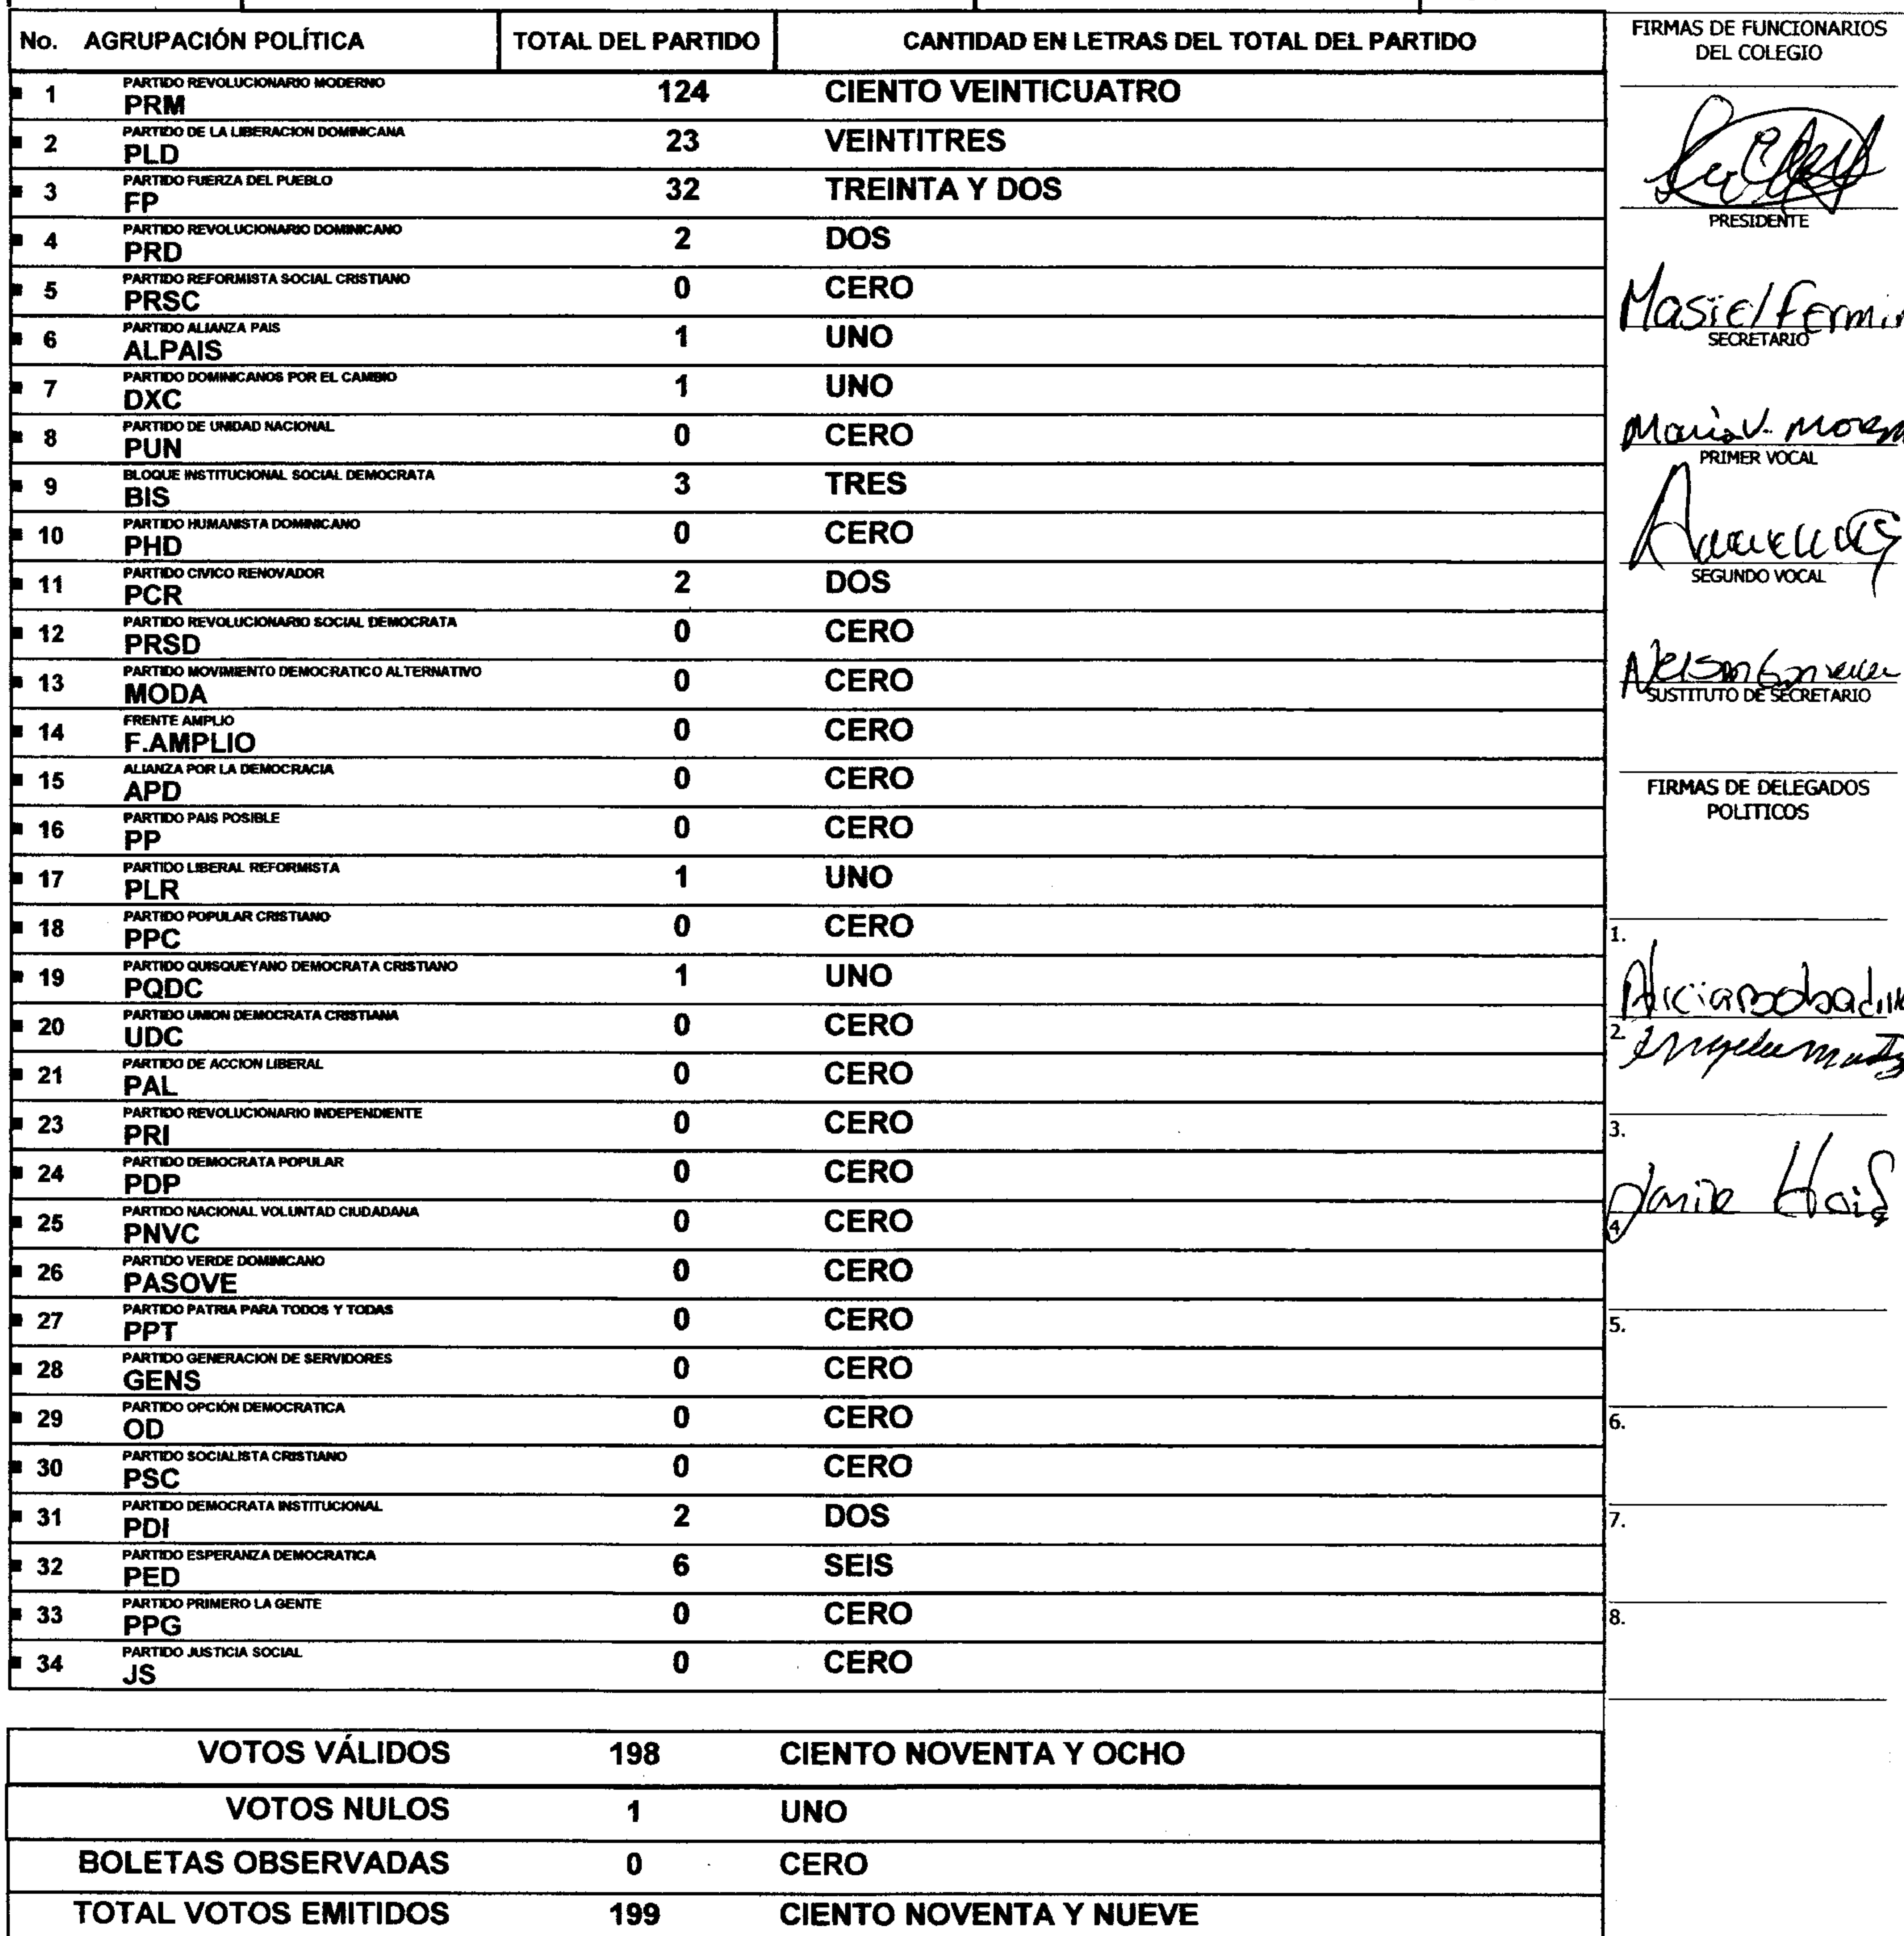 No. AGRUPACIÓN POLÍTICA TOTAL DEL PARTIDO CANTIDAD EN LETRAS DEL TOTAL DEL PARTIDO
PARTIDO REVOLUCIONARIO MODERNO
1 PRM 124 CIENTO VEINTICUATRO
PARTIDO DE LA LIBERACION DOMINICANA
2 PLD 23 VEINTITRES
PARTIDO FUERZA DEL PUEBLO
3 FP 32 TREINTA Y DOS
PARTIDO REVOLUCIONARIO DOMINICANO
4 PRD 2 DOS
PARTIDO REFORMISTA SOCIAL CRISTIANO
5 PRSC 0 CERO
PARTIDO ALIANZA PAIS
6 ALPAIS 1 UNO
PARTIDO DOMINICANOS POR EL CAMBIO
7 DXC 1 UNO
PARTIDO DE UNIDAD NACIONAL
8 PUN 0 CERO
BLOQUE INSTITUCIONAL SOCIAL DEMOCRATA
9 BIS 3 TRES
PARTIDO HUMANISTA DOMINICANO
10 PHD 0 CERO
PARTIDO CIVICO RENOVADOR
11 PCR 2 DOS
PARTIDO REVOLUCIONARIO SOCIAL DEMOCRATA
12 PRSD 0 CERO
PARTIDO MOVIMIENTO DEMOCRATICO ALTERNATIVO
13 MODA 0 CERO
FRENTE AMPLIO
14 F.AMPLIO 0 CERO
ALIANZA POR LA DEMOCRACIA
15 APD 0 CERO
PARTIDO PAIS POSIBLE
16 PP 0 CERO
PARTIDO LIBERAL REFORMISTA
17 PLR 1 UNO
PARTIDO POPULAR CRISTIANO
18 PPC 0 CERO
PARTIDO QUISQUEYANO DEMOCRATA CRISTIANO
19 PQDC 1 UNO
PARTIDO UNION DEMOCRATA CRISTIANA
20 UDC 0 CERO
PARTIDO DE ACCION LIBERAL
21 PAL 0 CERO
PARTIDO REVOLUCIONARIO INDEPENDIENTE
23 PRI 0 CERO
PARTIDO DEMOCRATA POPULAR
24 PDP 0 CERO
PARTIDO NACIONAL VOLUNTAD CIUDADANA
25 PNVC 0 CERO
PARTIDO VERDE DOMINICANO
26 PASOVE 0 CERO
PARTIDO PATRIA PARA TODOS Y TODAS
27 PPT 0 CERO
PARTIDO GENERACION DE SERVIDORES
28 GENS 0 CERO
PARTIDO OPCIÓN DEMOCRATICA
29 OD 0 CERO
PARTIDO SOCIALISTA CRISTIANO
30 PSC 0 CERO
PARTIDO DEMOCRATA INSTITUCIONAL
31 PDI 2 DOS
PARTIDO ESPERANZA DEMOCRATICA
32 PED 6 SEIS
PARTIDO PRIMERO LA GENTE
33 PPG 0 CERO
PARTIDO JUSTICIA SOCIAL
34 JS 0 CERO
VOTOS VÁLIDOS 198 CIENTO NOVENTA Y OCHO
VOTOS NULOS 1 UNO
BOLETAS OBSERVADAS 0 CERO
TOTAL VOTOS EMITIDOS 199 CIENTO NOVENTA Y NUEVE
FIRMAS DE FUNCIONARIOS
DEL COLEGIO
PRESIDENTE
Masiel Fermin
SECRETARIO
Maria V.
PRIMER VOCAL
SEGUNDO VOCAL
Nelson
SUSTITUTO DE SECRETARIO
FIRMAS DE DELEGADOS
POLITICOS
1.
2.
3.
4.
5.
6.
7.
8.